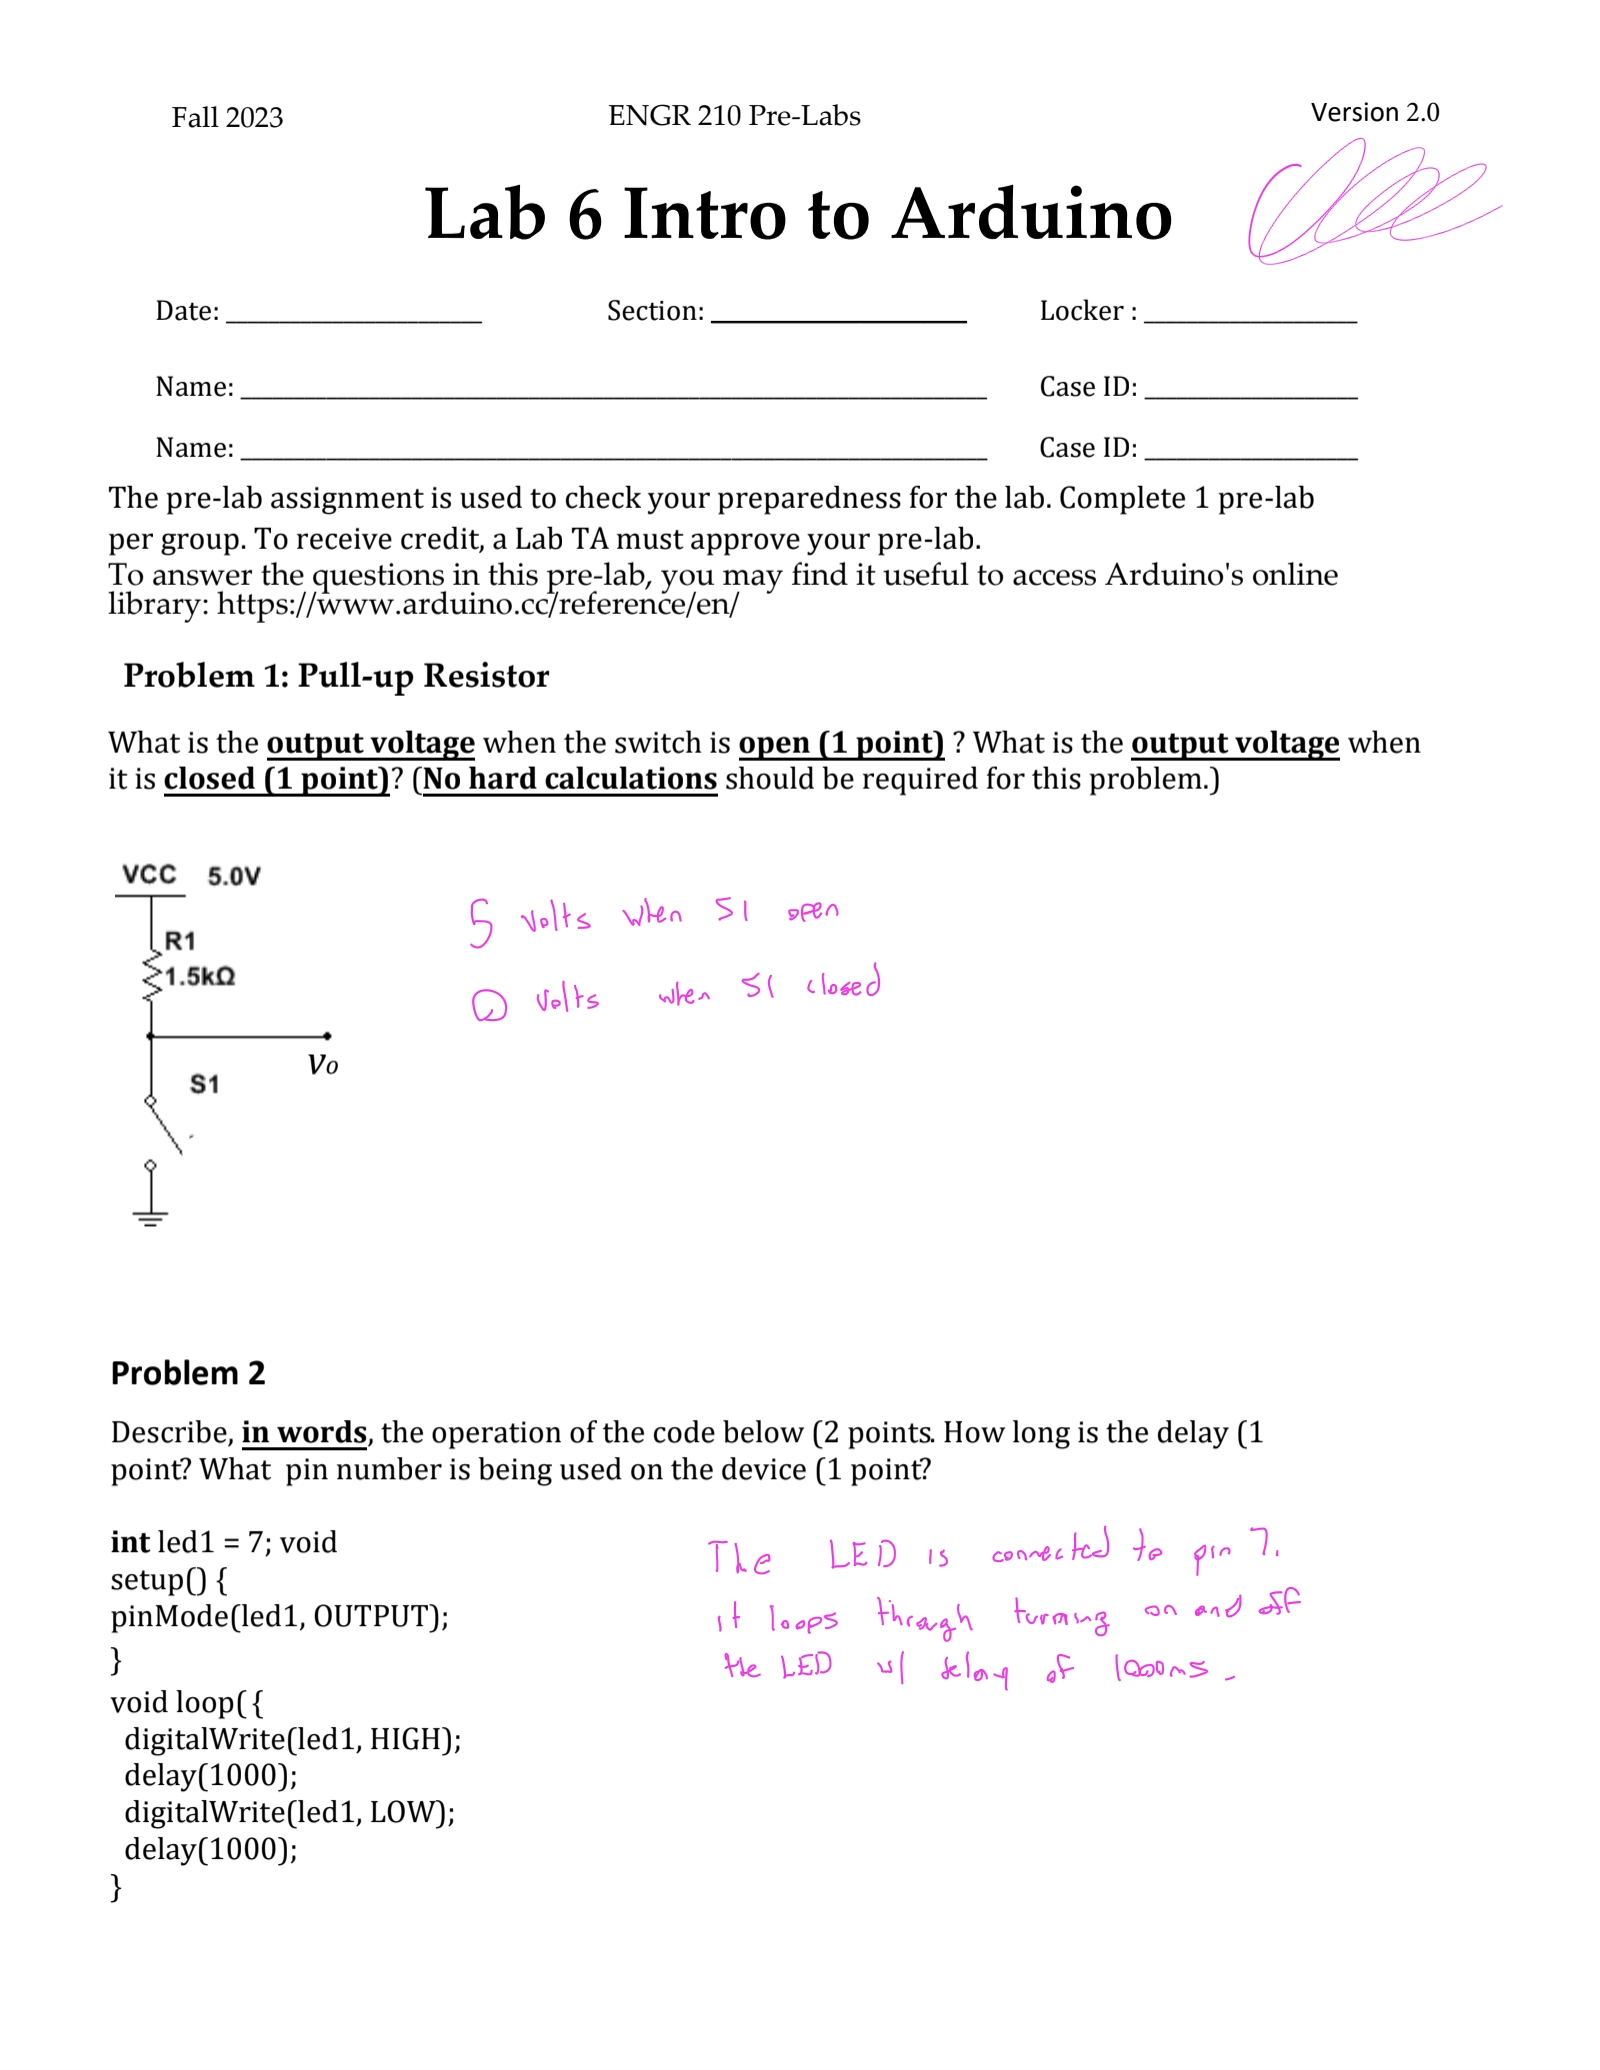 Fall 2023 ENGR 210 Pre-Labs Version 2.0
Lab 6 Intro to Arduino
Date: Section: Locker :
Name: Case ID:
Name: Case ID:
The pre-lab assignment is used to check your preparedness for the lab. Complete 1 pre-lab
per group. To receive credit, a Lab TA must approve your pre-lab.
To answer the questions in this pre-lab, you may find it useful to access Arduino's online
library: https://www.arduino.cc/reference/en/
Problem 1: Pull-up Resistor
What is the output voltage when the switch is open (1 point) ? What is the output voltage when
it is closed (1 point)? (No hard calculations should be required for this problem.)
VCC 5.0V
R1
1.5kΩ
Vo
S1
5 volts when S1 open
0 volts when S1 closed
Problem 2
Describe, in words, the operation of the code below (2 points. How long is the delay (1
point? What pin number is being used on the device (1 point?
int led1 = 7; void
setup() {
pinMode(led1, OUTPUT);
}
void loop( {
digitalWrite(led1, HIGH);
delay(1000);
digitalWrite(led1, LOW);
delay(1000);
}
The LED is connected to pin 7.
it loops through turning on and off
the LED w/ delay of 1000ms.